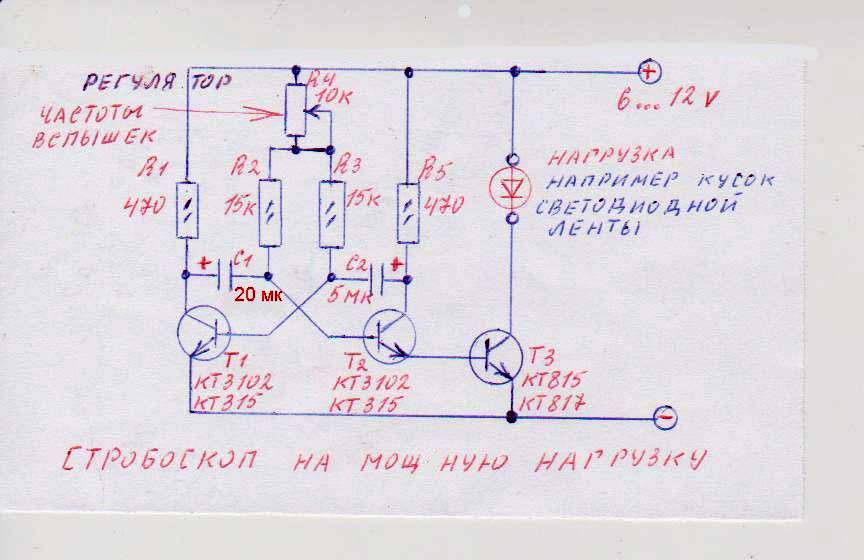 РЕГУЛЯТОР
ЧАСТОТЫ
ВСПЫШЕК
R4
10к
+
6...12 v
R1
470
R2
15к
R3
15к
R5
470
НАГРУЗКА
НАПРИМЕР КУСОК
СВЕТОДИОДНОЙ
ЛЕНТЫ
+ C1
20 мк
C2 +
5 мк
T1
КТ3102
КТ315
T2
КТ3102
КТ315
T3
КТ815
КТ817
-
СТРОБОСКОП НА МОЩНУЮ НАГРУЗКУ